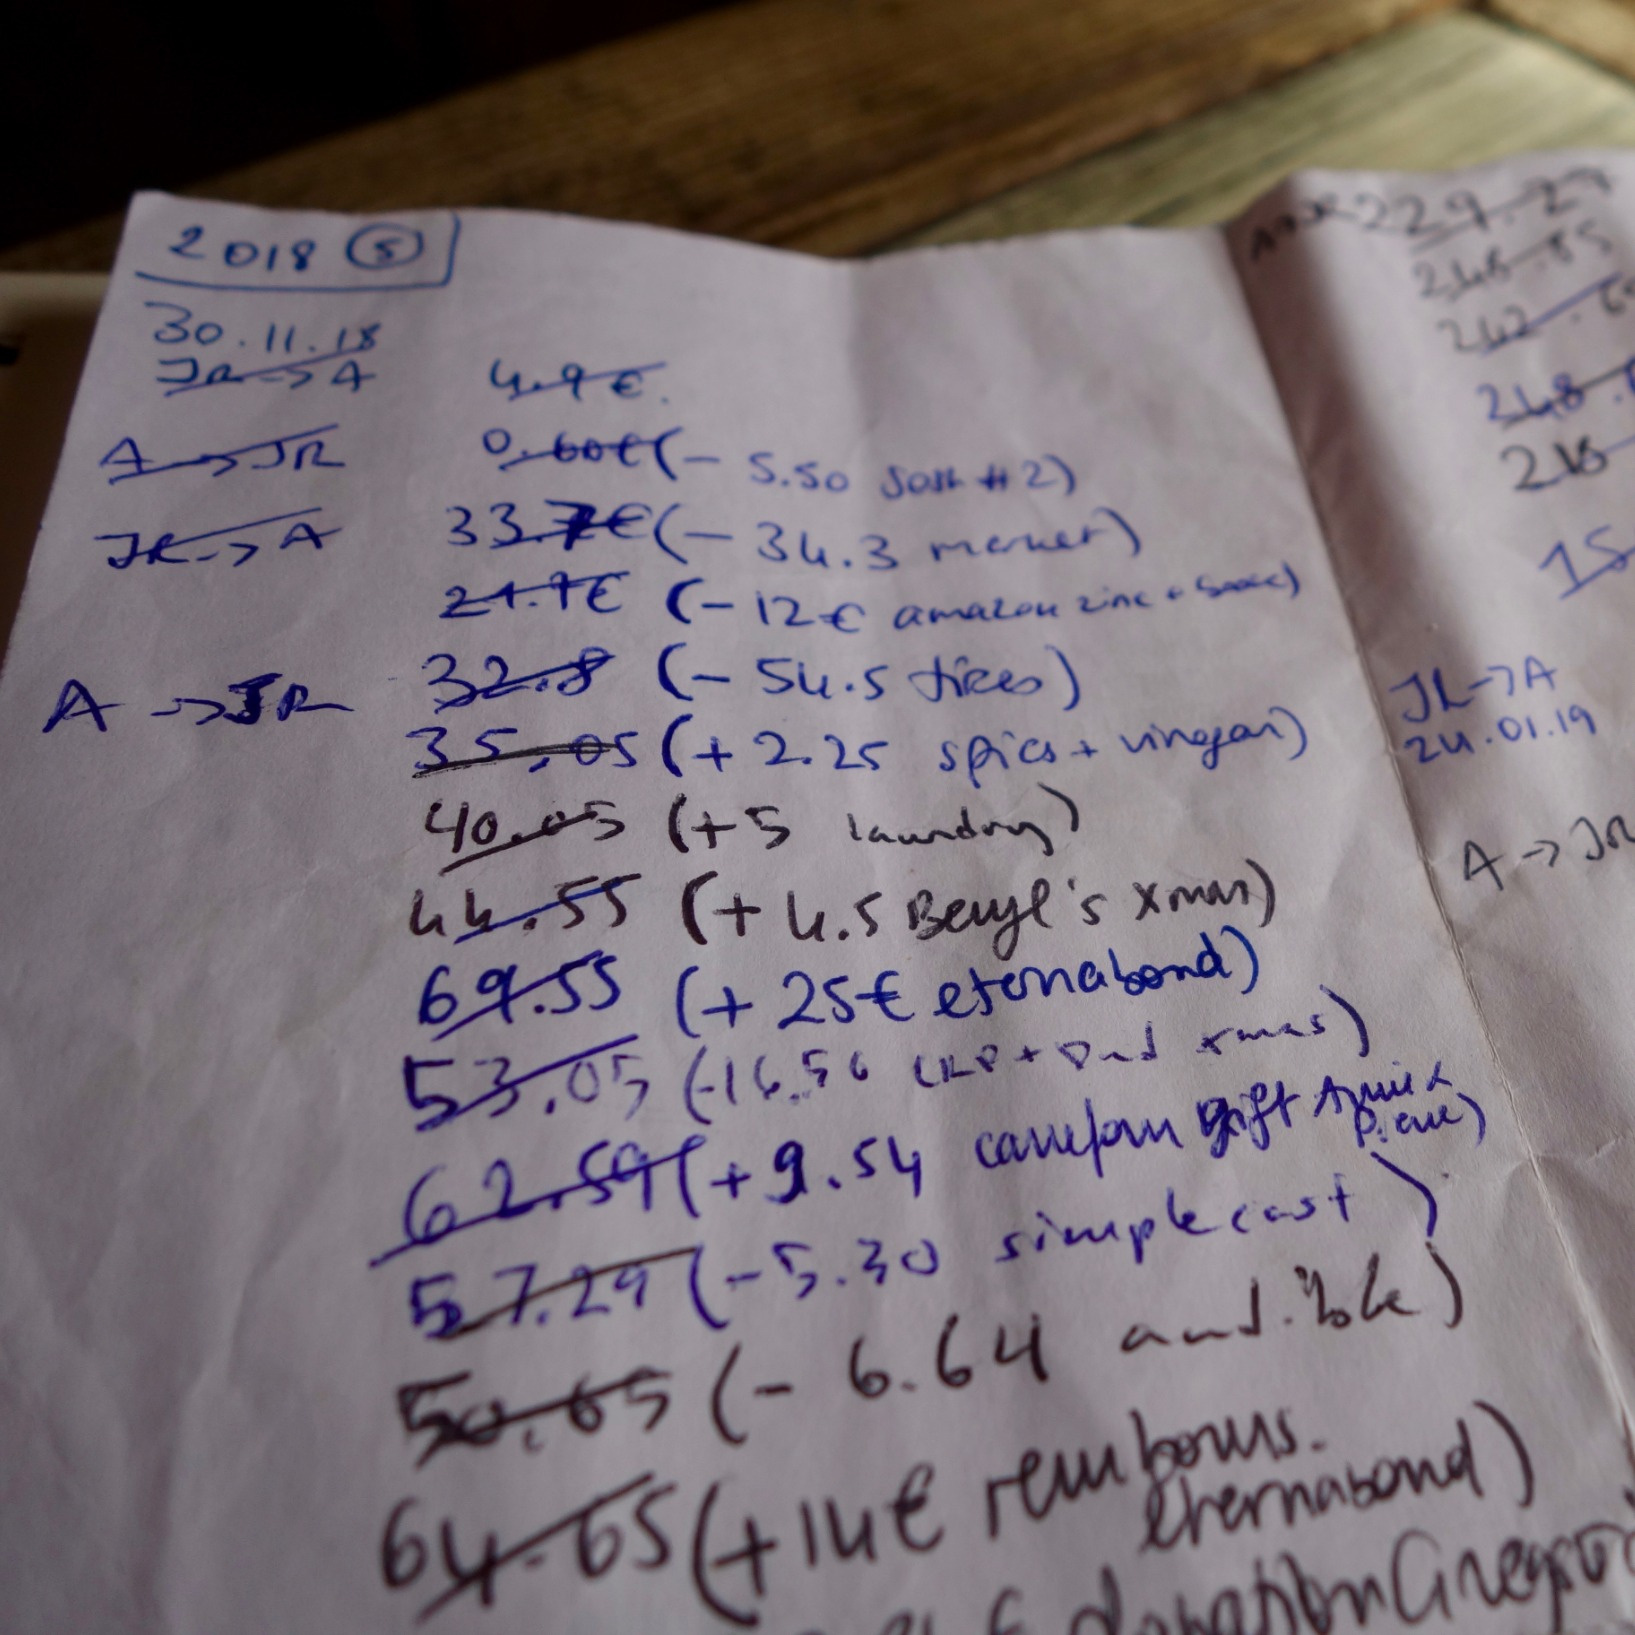 2018 5
30.11.18
JR -> A 4.9€.
A -> JR 0.60€ (- 5.50 Josh #2)
JR -> A 33.7€ (- 34.3 market)
21.7€ (- 12€ amazon zinc +
A -> JR 32.8 (- 54.5 tires)
35.05 (+ 2.25 spics + vinegar)
40.05 (+5 laundry)
44.55 (+ 4.5 Beryl's xmas)
69.55 (+ 25€ eternabond)
53.05 (-16.50 + Dad xmas)
62.59 (+ 9.54 gift Annie &
57.29 (-5.30 simplecast)
50.65 (- 6.64 audible)
64.65 (+14€ rembours.
eternabond)
donation
229.29
248.85
242.
248.
218
15
JR -> A
24.01.19
A -> JR